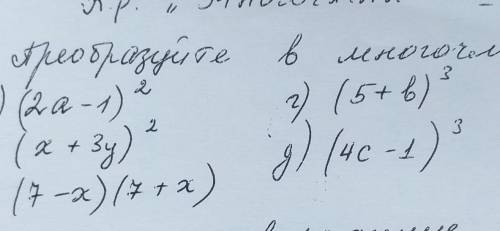 Преобразуйте в многочлен
(2a - 1)²
(x + 3y)²
(7 - x)(7 + x)
г) (5 + b)³
д) (4c - 1)³